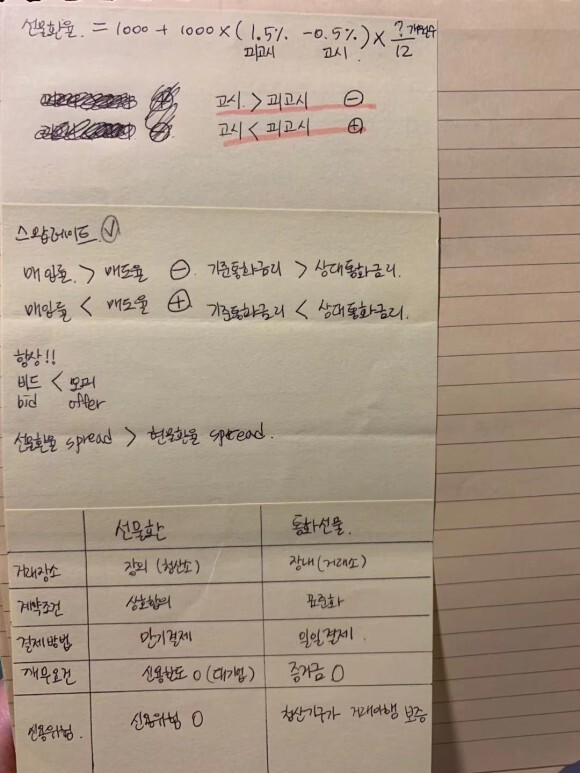 선물환율 = 1000 + 1000 × ( 1.5% - 0.5% ) × ? 개월수
피고시 고시 12
고시 > 피고시 ⊖
고시 < 피고시 ⊕
스왑레이트 ✓
매입율 > 매도율 ⊖ 기준통화금리 > 상대통화금리.
매입율 < 매도율 ⊕ 기준통화금리 < 상대통화금리.
항상!!
비드 < 오퍼
bid offer
선물환율 spread > 현물환율 spread.
선물환 통화선물.
거래장소 장외 (청산소) 장내 (거래소)
계약조건 상호합의 표준화
결제방법 만기결제 일일결제.
신용한도 0 (대기업) 증거금 0
신용위험. 신용위험 0 청산기구가 거래이행 보증